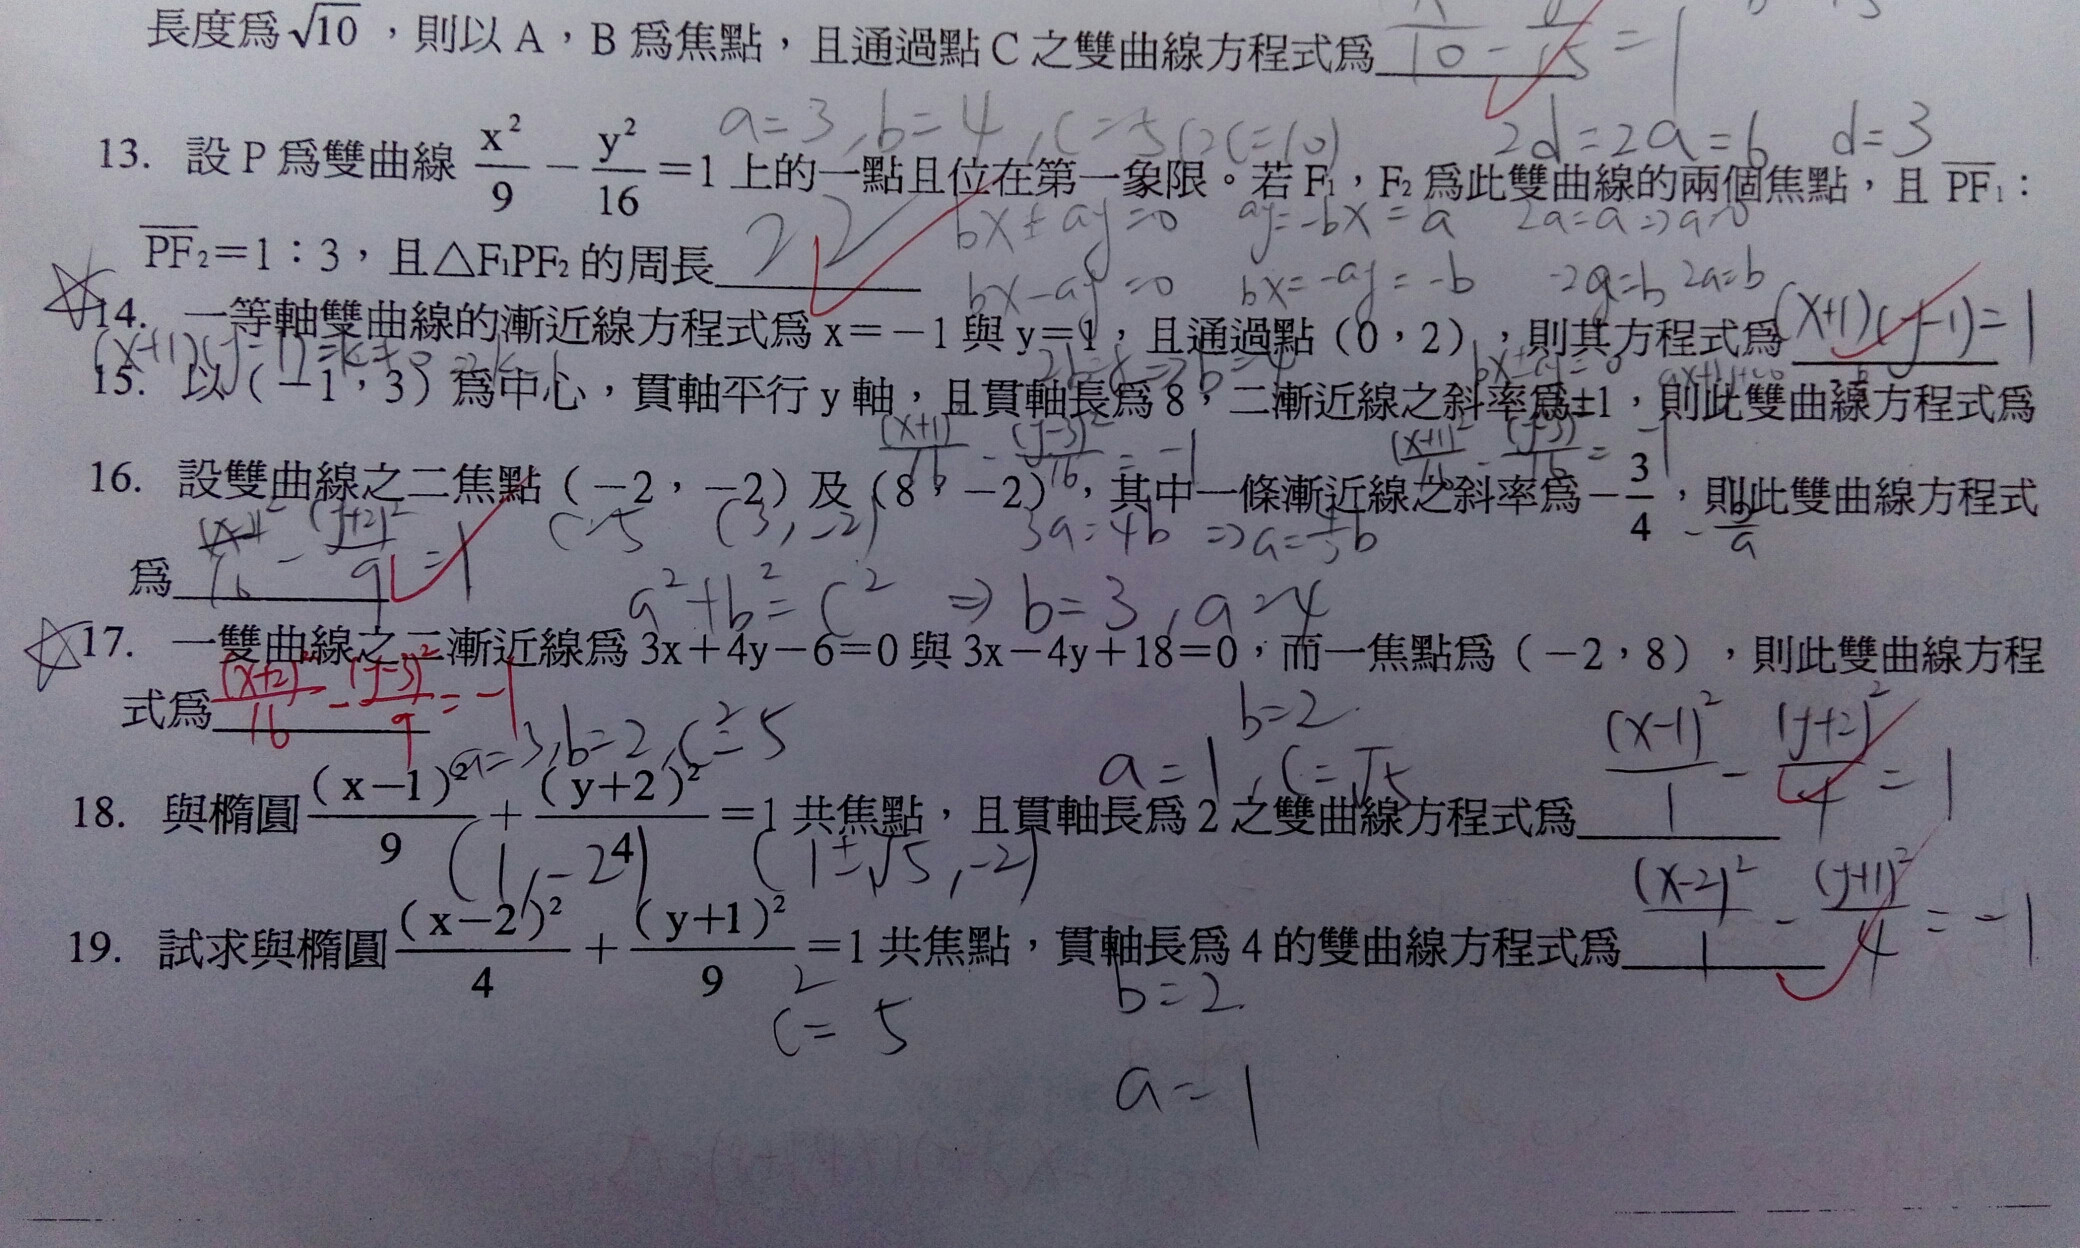 長度爲√10，則以 A，B 爲焦點，且通過點 C 之雙曲線方程式爲 10 - 15 = 1
a=3, b=4, c=5 (2c=10) 2d=2a=6 d=3
13. 設 P 爲雙曲線 x²/9 − y²/16 =1 上的一點且位在第一象限。若 F₁，F₂ 爲此雙曲線的兩個焦點，且 PF₁：
bx±ay=0 ay=-bx=a 2a=a⇒a=0
PF₂=1：3，且△F₁PF₂ 的周長 22
bx-ay=0 bx=-ay=-b -2a=b 2a=b
14. 一等軸雙曲線的漸近線方程式爲 x=－1 與 y=1，且通過點（0，2），則其方程式爲 (x+1)(y-1)=1
15. 以（－1，3）爲中心，貫軸平行 y 軸，且貫軸長爲 8，二漸近線之斜率爲±1，則此雙曲線方程式爲
(x+1)²/16 - (y-3)²/16 = -1 (x+1)²/16 - (y-3)²/16 = -1
16. 設雙曲線之二焦點（－2，－2）及（8，－2），其中一條漸近線之斜率爲－3/4，則此雙曲線方程式
c=5 (3,-2) 3a=4b ⇒a=4/3b -b/a
爲 16 - (y+2)²/9 =1
a²+b²=c² ⇒ b=3, a=4
17. 一雙曲線之二漸近線爲 3x＋4y－6=0 與 3x－4y＋18=0，而一焦點爲（－2，8），則此雙曲線方程
式爲 (x+2)²/16 - (y-3)²/9 = -1
a=3, b=2, c²=5 b=2
a=1, c=√5 (x-1)²/1 - (y+2)²/4 = 1
18. 與橢圓 (x−1)²/9 + (y+2)²/4 =1 共焦點，且貫軸長爲 2 之雙曲線方程式爲
(1,-2) (1±√5,-2) (x-2)²/1 - (y+1)²/4 = -1
19. 試求與橢圓 (x−2)²/4 + (y+1)²/9 =1 共焦點，貫軸長爲 4 的雙曲線方程式爲
c²=5 b=2
a=1